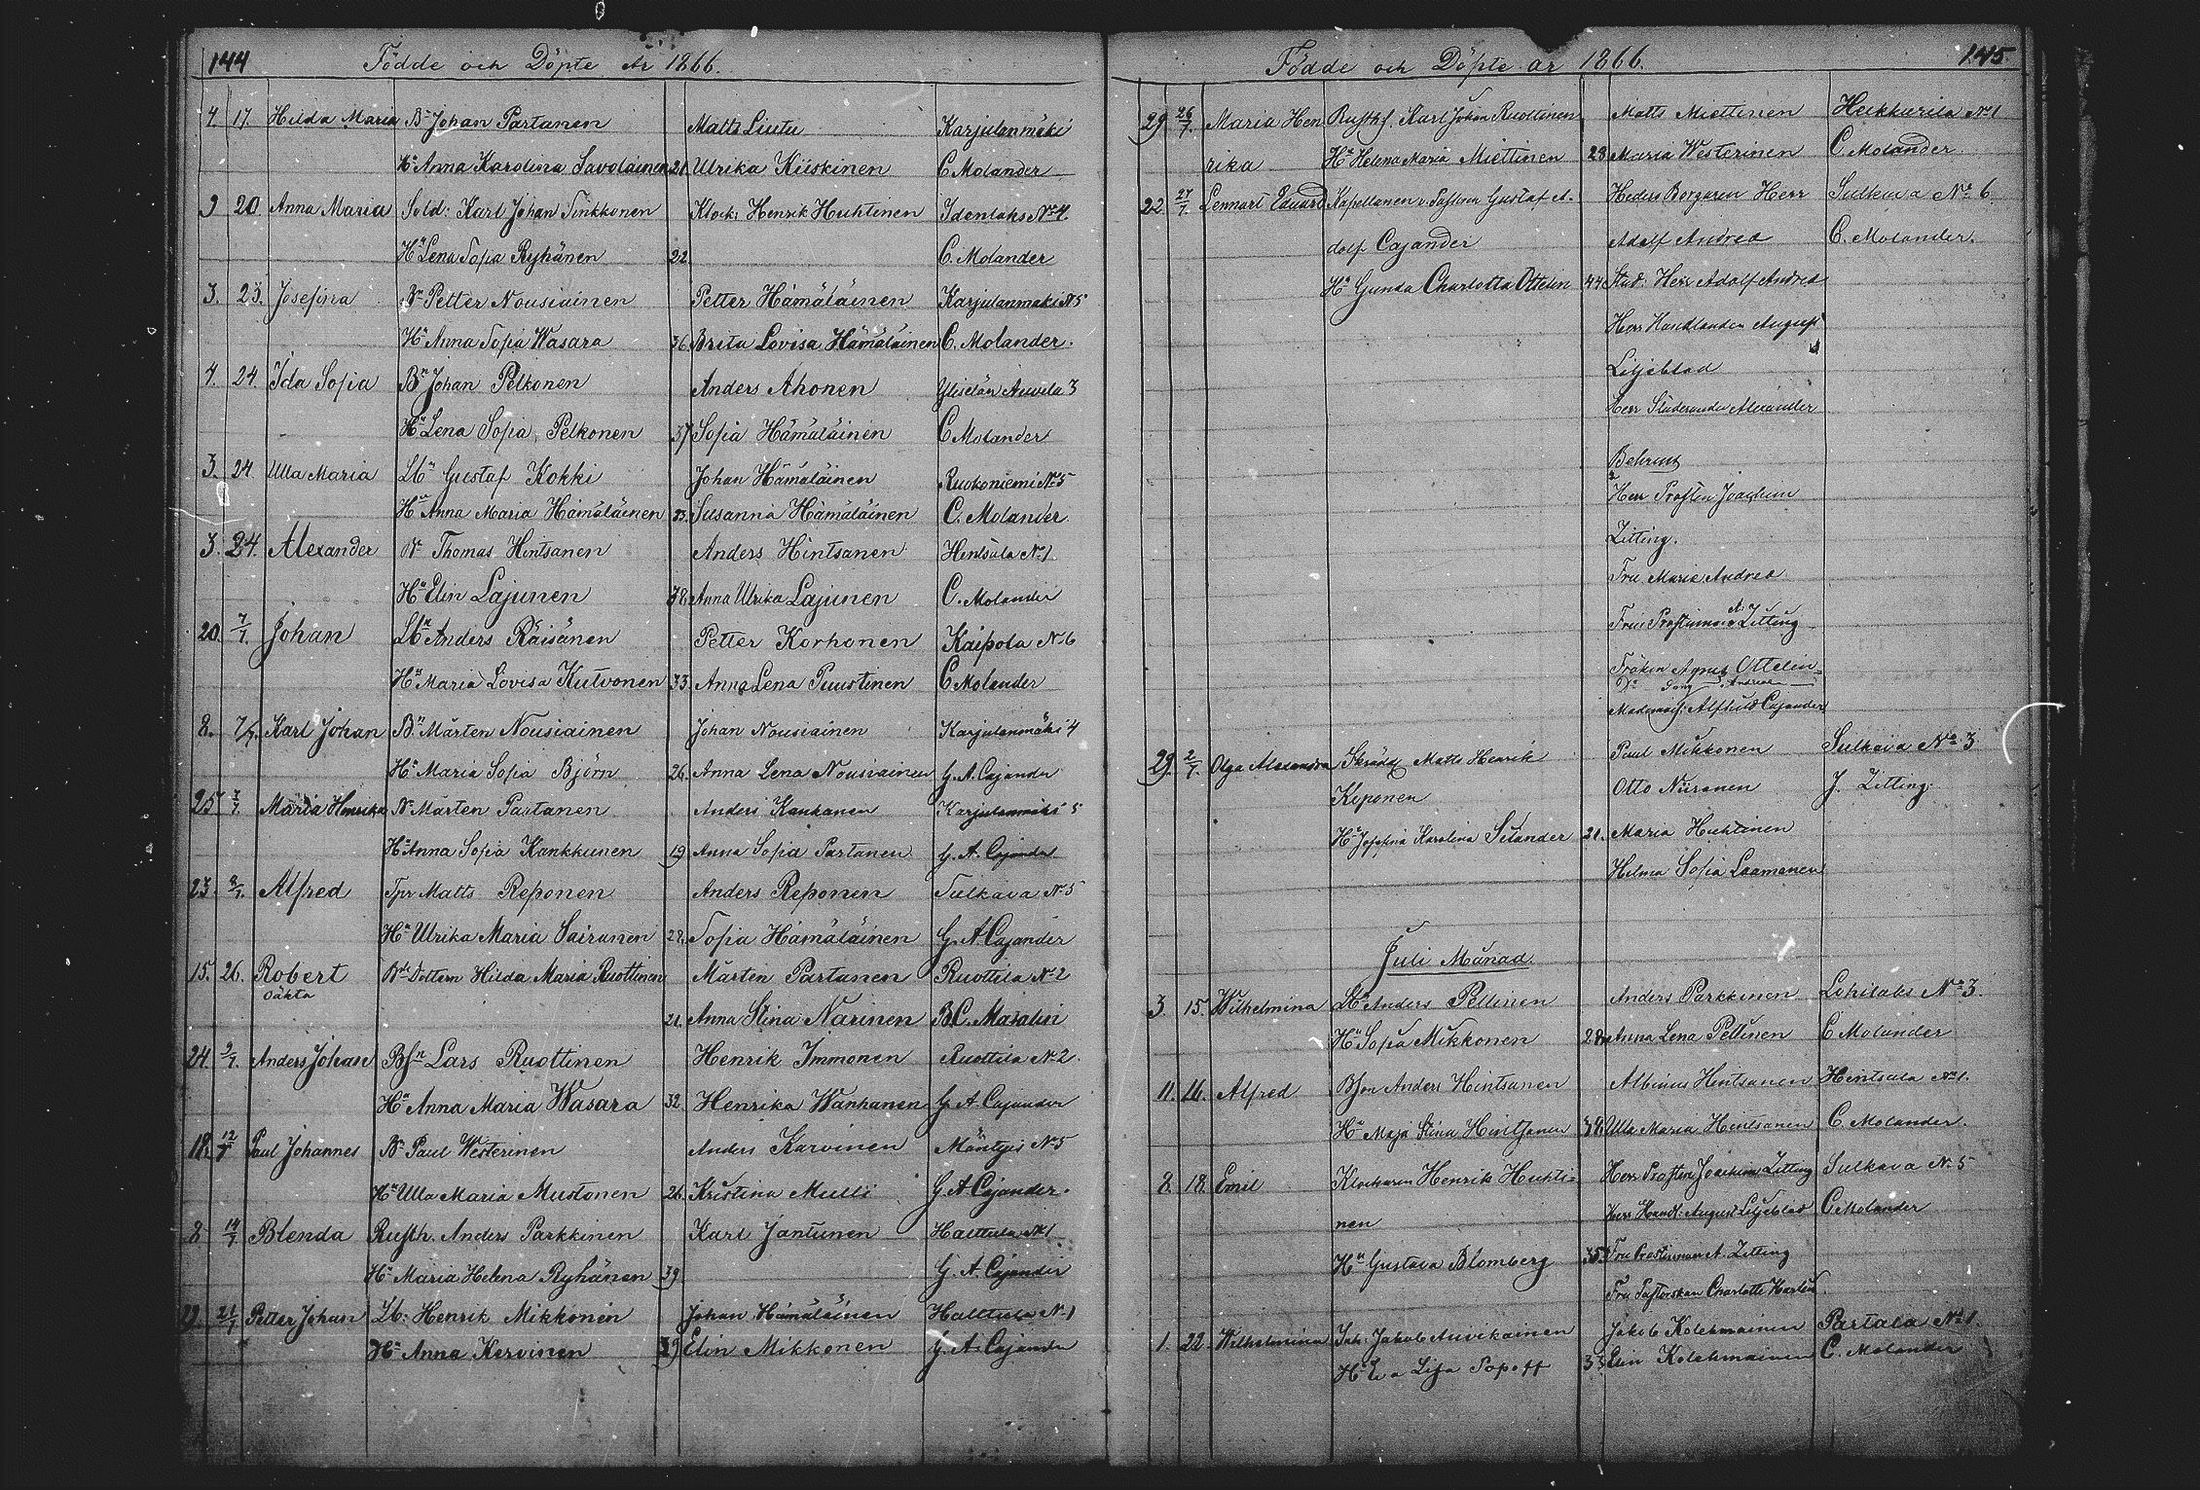 144 Födde och Döpte År 1866.
4. 17 Hilda Maria Bn Johan Partanen Matts Liutu Karjulanmäki
Hu Anna Karolina Savolainen 21. Ulrika Kiiskinen C. Molander
9 20. Anna Maria Sold: Karl Johan Tinkkonen Klock: Henrik Huhtinen Idenlaks No 4.
Hu Lena Sofia Ryhänen 22. C. Molander
3. 23. Josefina Bn Petter Nousiainen Petter Hämäläinen Karjulanmäki N5
Hu Anna Sofia Wasara 36. Brita Lovisa Hämäläinen C. Molander.
4. 24. Ida Sofia Bn Johan Pelkonen Anders Ahonen 3
Hu Lena Sofia Pelkonen 37 Sofia Hämäläinen C Molander
3. 24. Ulla Maria Lbn Gustaf Kokki Johan Hämäläinen Ruokoniemi No 5
Hu Anna Maria Hämäläinen 23. Susanna Hämäläinen C. Molander.
3. 24. Alexander Bn Thomas Hintsanen Anders Hintsanen Hintsala No 1.
Hu Elin Lajunen 38. Anna Ulrika Lajunen C. Molander
20. 7/7. Johan Lbn Anders Räisänen Petter Korhonen Kaipola No 6
Hu Maria Lovisa Kutvonen 33. Anna Lena Puustinen C Molander
8. 7/7. Karl Johan Bn Mårten Nousiainen Johan Nousiainen Karjulanmäki 4
Hu Maria Sofia Björn 26. Anna Lena Nousiainen G. A. Cajander
25. 7/7 Maria Henrika Bn Mårten Partanen Anders Kankanen Karjulanmäki 5
Hu Anna Sofia Kankkunen 19. Anna Sofia Partanen G. A. Cajander
23. 8/7. Alfred Tpr Matts Reponen Anders Reponen Sulkava No 5
Hu Ulrika Maria Sairanen 28. Sofia Hämäläinen G. A. Cajander
15. 26. Robert Bde Dottern Hilda Maria Ruottinen Mårten Partanen Ruottila No 2
oäkta
21. Anna Stina Narinen B. C. Masalin
24. 9/7. Anders Johan Bsn Lars Ruottinen Henrik Immonen Ruottila No 2.
Hu Anna Maria Wasara 32. Henrika Wanhanen G. A. Cajander
18. 12/7 Paul Johannes Bn Paul Westerinen Anders Karvinen Mäntyis No 5
Hu Ulla Maria Mustonen 26. Kristina Mulli G. A. Cajander.
8 14/7 Blenda Rusth. Anders Parkkinen Karl Jantunen Halttula No 1
Hu Maria Helena Ryhänen 39. G. A. Cajander
29. 21/7 Petter Johan Lb: Henrik Mikkonen Johan Hämäläinen Halttula No 1
Hu Anna Kervinen 39 Elin Mikkonen G. A. Cajander
Födde och Döpte år 1866. 145.
29 26/7. Maria Hen Rusthf. Karl Johan Ruottinen Matts Miettinen Heikkurila No 1
rika Hu Helena Maria Miettinen 28 Maria Westerinen C. Molander
22. 27/7. Lennart Eduard Kapellanen v. Pastorn Gustaf A- Heders Borgaren Herr Sulkava No 6.
dolf Cajander Adolf Andrea C. Molander.
Hu Gunda Charlotta Ottelin 44 Stud: Herr Adolf Andrea
Herr Handlanden August
Liljeblad
Herr Studeranden Alexander
Behrens
Herr Prosten Joachim
Zitting.
Fru Marie Andrea
Fru Prostinnan A. Zitting
Fröken Agnes Ottelin
Do Andrea
Madmois: Cajander
29. 2/7. Olga Alexandra Skrädd Matts Henrik Paul Mikkonen Sulkava No 3
Reponen Otto Niiranen J. Zitting.
Hu Josefina Karolina Selander 21. Maria Huhtinen
Hilma Sofia Laamanen
Juli Månad.
3. 15. Wilhelmina Lbn Anders Pellinen Anders Parkkinen Lohilaks No 3.
Hu Sofia Mikkonen 28. Anna Lena Pellinen C Molander
11. 16. Alfred Bson Anders Hintsanen Albinus Hintsanen Hintsala No 1.
Hu Maja Stina Hintsanen 38 Ulla Maria Hintsanen C. Molander.
8. 18. Emil Klockaren Henrik Huhti- Herr Prosten Joachim Zitting Sulkava No 5
nen Herr Handl: August Liljeblad C Molander
Hu Gustava Blomberg 35 Fru Prostinnan A. Zitting
Fru Pastorskan Charlotte Karlin
1. 22. Wilhelmina Inh: Jakob Auvikainen Jakob Kolehmainen Partala No 1.
Hu Eva Lisa Popoff 35 Elin Kolehmainen C. Molander